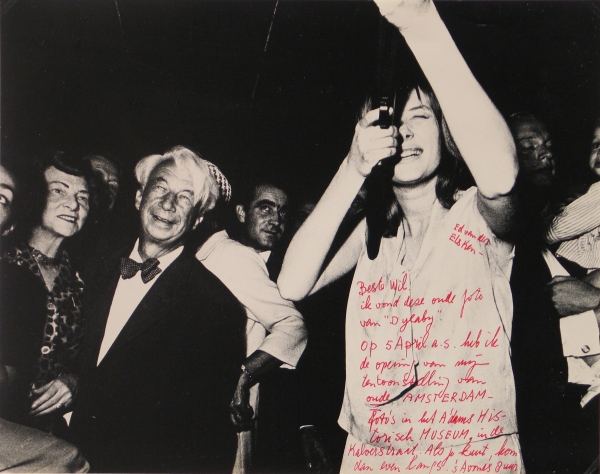 Ed van der
Elsken -
Beste Wil,
ik vond deze oude foto
van "Dylaby"
op 5 April a.s. heb ik
de opening van mijn
tentoonstelling van
oude AMSTERDAM -
foto's in het A'dams HIS-
torisch MUSEUM, in de
Kalverstraat. Als je kunt kom
dan even langs, 's avonds 8 uur